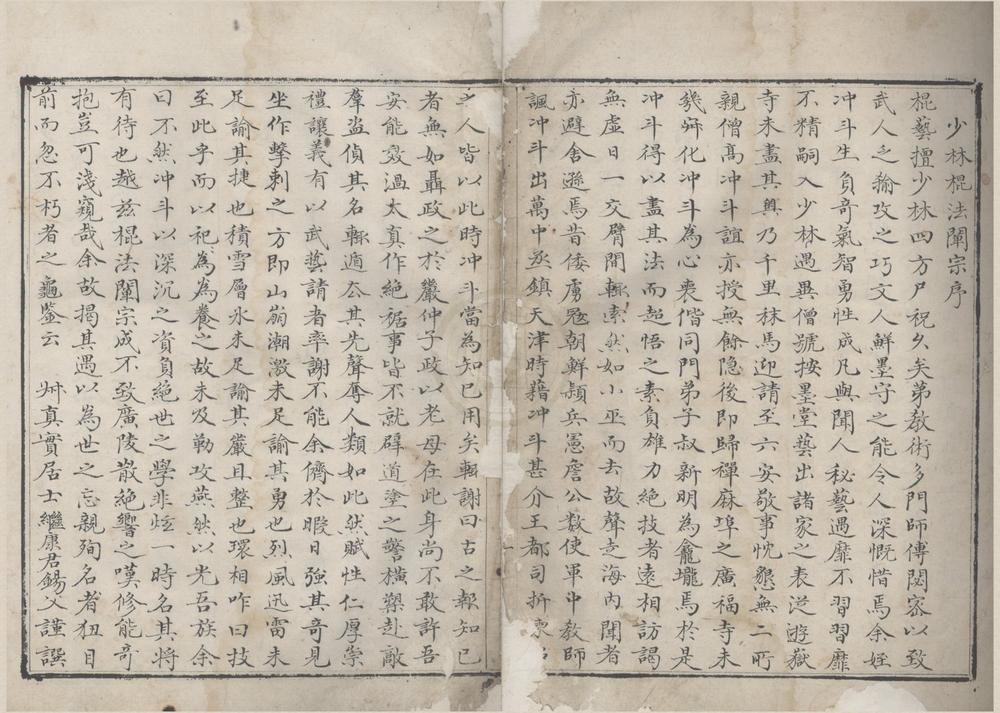 少林棍法闡宗序
棍藝擅少林四方尸祝久矣第教術多門師傅閟密以致
武人之輸攻之巧文人鮮墨守之能令人深慨惜焉余姪
冲斗生負奇氣智勇性成凡與聞人秘藝遇靡不習習靡
不精嗣入少林遇異僧號按墨堂藝出諸家之表從遊嶽
寺未盡其輿乃千里秣馬迎請至六安敬事忱懇無二所
親僧高冲斗誼亦授無餘隐後即歸禪麻埠之廣福寺未
幾舜化冲斗為心喪偕同門弟子叔新明為龕壠焉於是
冲斗得以盡其法而超悟之素負雄力絕技者遠相訪謁
無虛日一交臂間輒索然如小巫而去故聲走海內聞者
亦避舍遜焉昔倭虜冦朝鮮頴兵憲詹公数使軍中教師
諷冲斗出萬中丞鎮天津時藉冲斗甚介王都司折
之人皆以此時冲斗當為知已用矣輒謝曰古之報知已
者無如聶政之於嚴仲子政以老母在此身尚不敢許吾
安能效過太真作絕裾事皆不就辟道塗之警橫禦赴敵
羣盜偵其名輙遁厺其先聲辱人類如此然賦性仁厚崇
禮讓義有以武藝請者率謝不能余儕於暇日強其奇見
坐作擊刺之方即山崩潮激未足諭其勇也烈風迅雷未
足諭其捷也積雪層氷未足諭其嚴且整也環相咋曰技
至此乎而以祀為為養之故未及勒攻燕然以光吾族余
曰不然冲斗以深沉之資負絕世之學非炫一時名其將
有待也越兹棍法闡宗成不致廣陵散絕響之嘆修能奇
抱豈可淺窺哉余故揭其遇以為世之忘親殉名者狃目
前而忽不朽者之龜鉴云 艸真實居士繼康君錫父謹譔